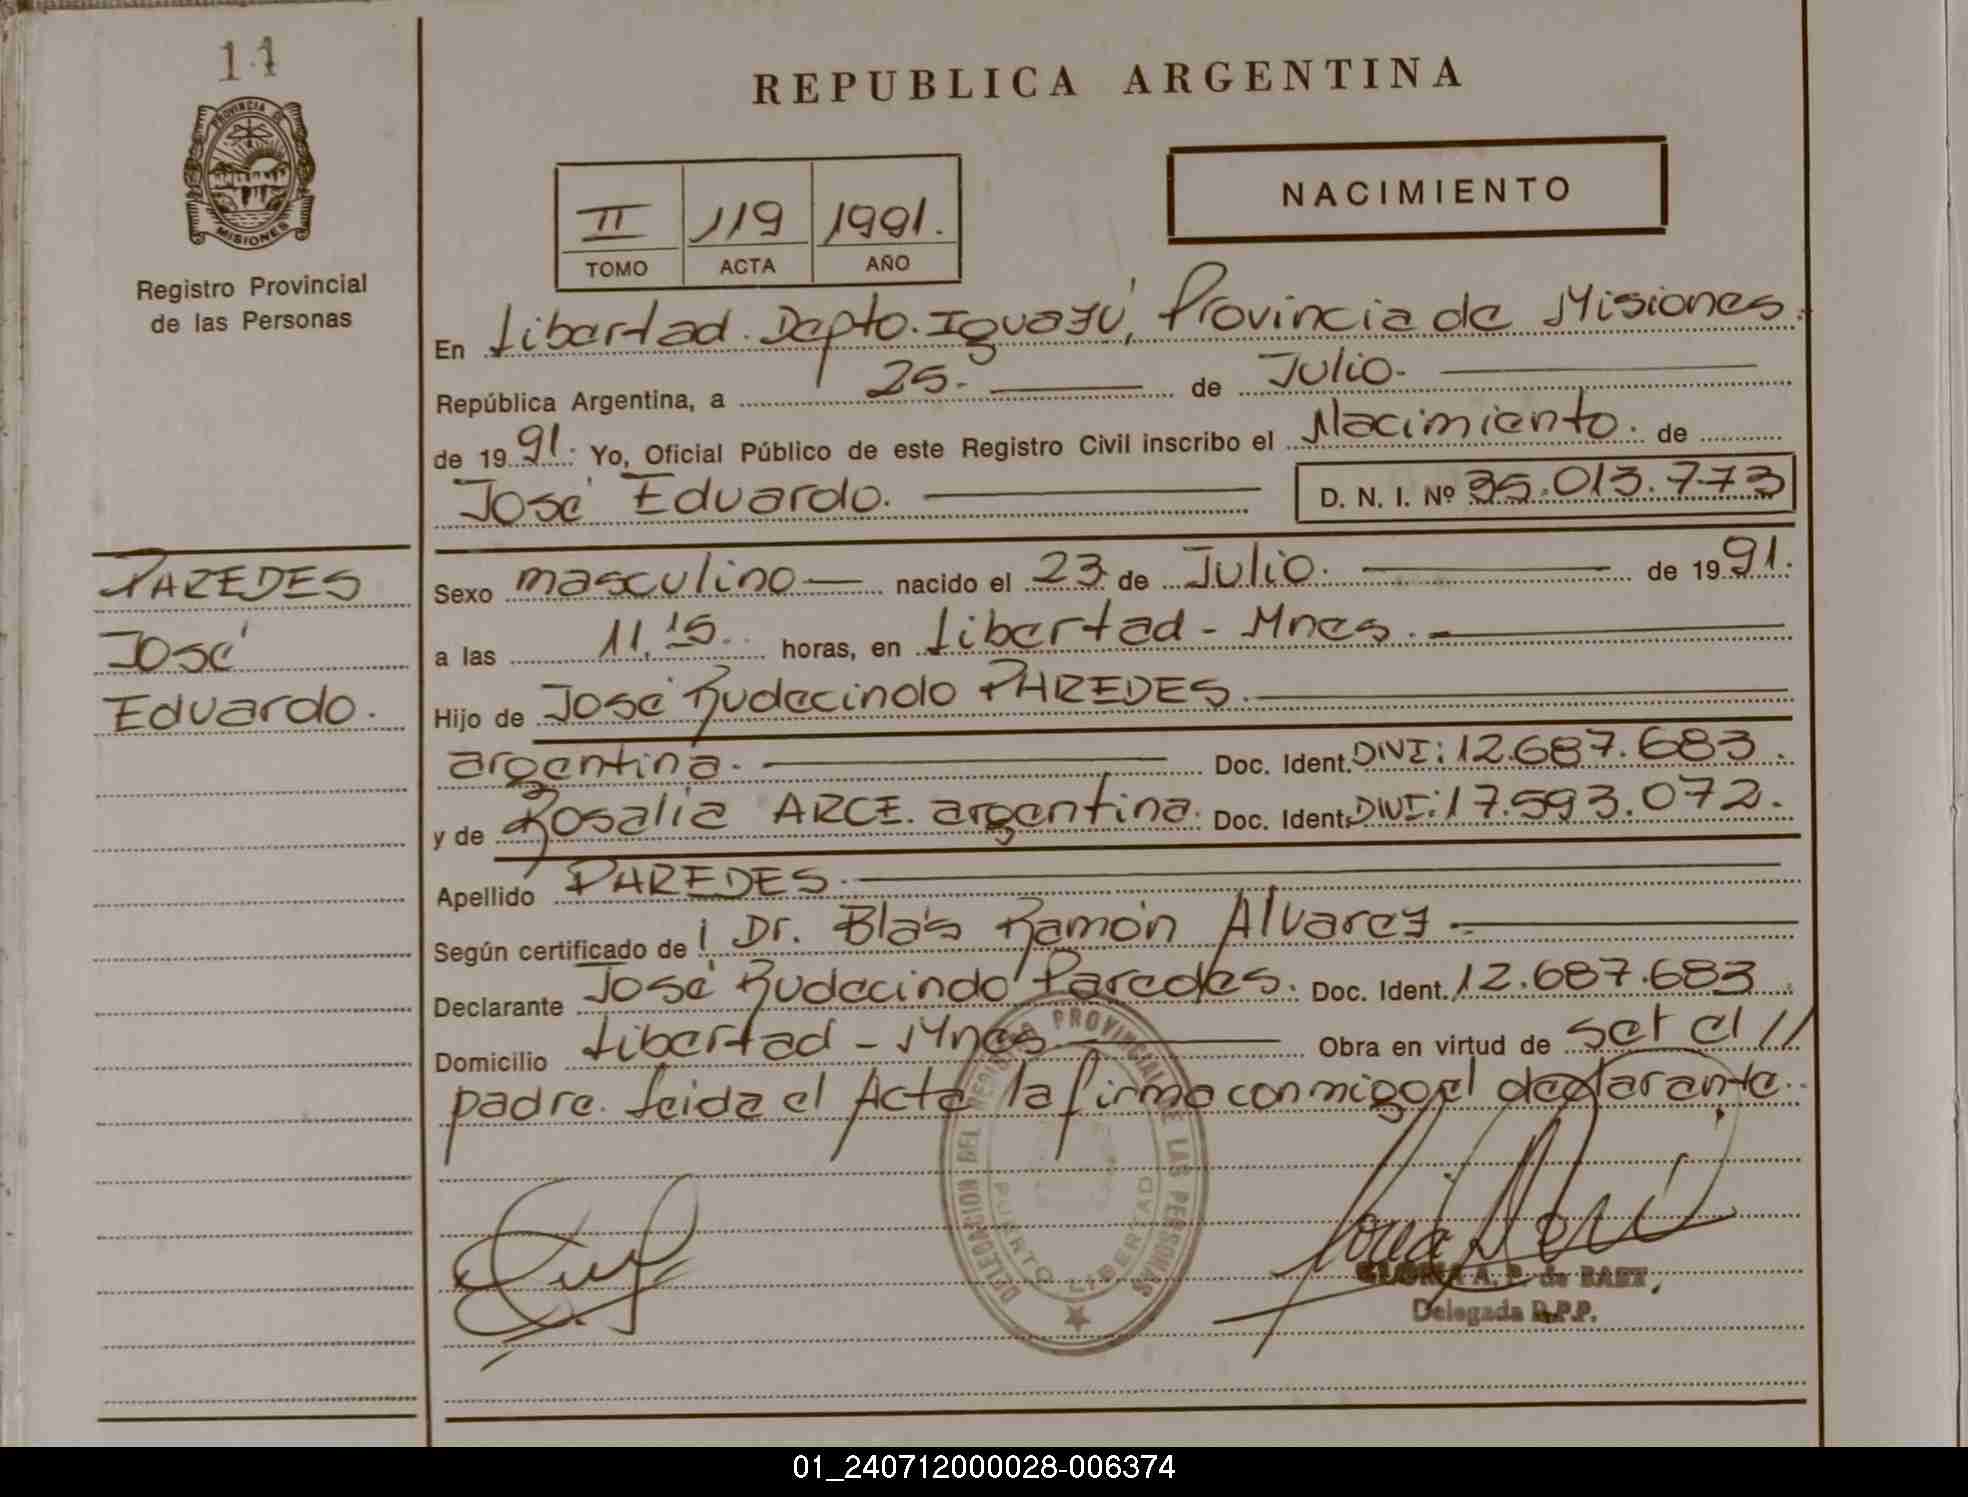 11
PROVINCIA DE
MISIONES
Registro Provincial
de las Personas
REPUBLICA ARGENTINA
NACIMIENTO
II 119 1991.
TOMO ACTA AÑO
En Libertad. Depto. Iguazú, Provincia de Misiones.
República Argentina, a 25. de Julio.
de 1991. Yo, Oficial Público de este Registro Civil inscribo el Nacimiento. de
José Eduardo. D. N. I. Nº 35.013.773
PAREDES
José
Eduardo.
Sexo masculino nacido el 23 de Julio. de 1991.
a las 11,15. horas, en Libertad - Mnes.
Hijo de José Rudecindo PAREDES.
argentina. Doc. Ident. DNI: 12.687.683.
y de Rosalia ARCE. argentina. Doc. Ident. DNI: 17.593.072.
Apellido PAREDES.
Según certificado de Dr. Blás Ramón Alvarez
Declarante José Rudecindo Paredes. Doc. Ident. 12.687.683
Domicilio Libertad - Mnes Obra en virtud de ser el //
padre. Leida el Acta la firma conmigo el declarante.
DELEGACION DEL REGISTRO PROVINCIAL DE LAS PERSONAS
PUERTO LIBERTAD
GLORIA A. P. de BAEZ
Delegada R.P.P.
01_240712000028-006374